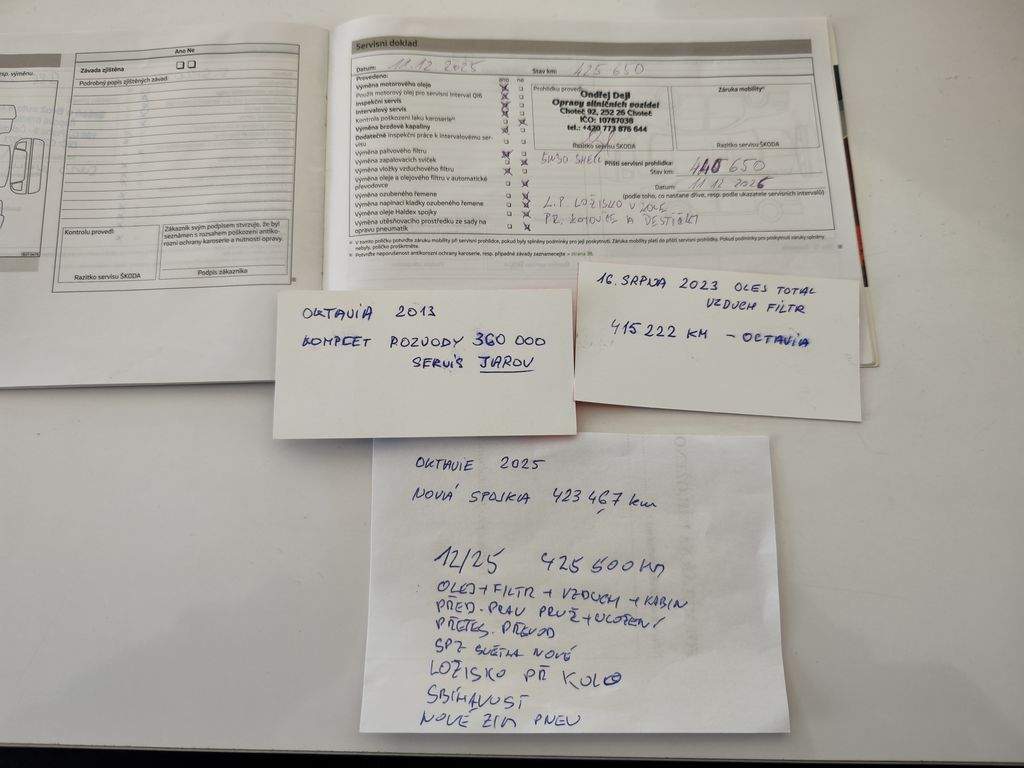 esp. výměnu.
Ano Ne
Závada zjištěna
Podrobný popis zjištěných závad:
Kontrolu provedl:
Razítko servisu ŠKODA
Zákazník svým podpisem stvrzuje, že byl
seznámen s rozsahem poškození antiko-
rozní ochrany karoserie a nutností opravy.
Podpis zákazníka
Servisní doklad
Datum: 11.12.2025 Stav km: 425 650
Provedeno: ano ne
Výměna motorového oleje
Použit motorový olej pro servisní interval QI6
Inspekční servis
Intervalový servis
Kontrola poškození laku karoserie
Výměna brzdové kapaliny
Dodatečné inspekční práce k intervalovému ser-
visu
Výměna palivového filtru
Výměna zapalovacích svíček
Výměna vložky vzduchového filtru
Výměna oleje a olejového filtru v automatické
převodovce
Výměna ozubeného řemene
Výměna napínací kladky ozubeného řemene
Výměna oleje Haldex spojky
Výměna utěsňovacího prostředku ze sady na
opravu pneumatik
Prohlídku provedl
Ondřej Dejl
Opravy silničních vozidel
Choteč 92, 252 26 Choteč
IČO: 10787038
tel.: +420 773 876 644
Razítko servisu ŠKODA
Záruka mobility
Razítko servisu ŠKODA
5W30 SHELL
Příští servisní prohlídka:
Stav km: 440 650
Datum: 11 12 2026
(podle toho, co nastane dříve, resp. podle ukazatele servisních intervalů)
L.P. LOŽISKO V KOLE
PR. KOTOUČE A DESTIČKY
V tomto políčku potvrďte záruku mobility při servisní prohlídce, pokud byly splněny podmínky pro její poskytnutí. Záruka mobility platí do příští servisní prohlídky. Pokud podmínky pro poskytnutí záruky splněny
nebyly, políčko proškrtněte.
Potvrďte neporušenost antikorozní ochrany karoserie, resp. případné závady zaznamenejte » strana 38.
OKTAVIA 2013
KOMPLET ROZVODY 360 000
SERVIS JAROV
16. SRPNA 2023 OLEJ TOTAL
VZDUCH FILTR
415 222 KM - OCTAVIA
OKTAVIE 2025
NOVÁ SPOJKA 423 467 km
12/25 425 500 km
OLEJ + FILTR + VZDUCH + KABIN
PŘED. PRAV PRUŽ + ULOŽENÍ
PŘETĚS. PŘEVOD
SPZ SVĚTLA NOVÉ
LOŽISKO PŘ KOLO
SBÍHAVOST
NOVÉ ZIM PNEU